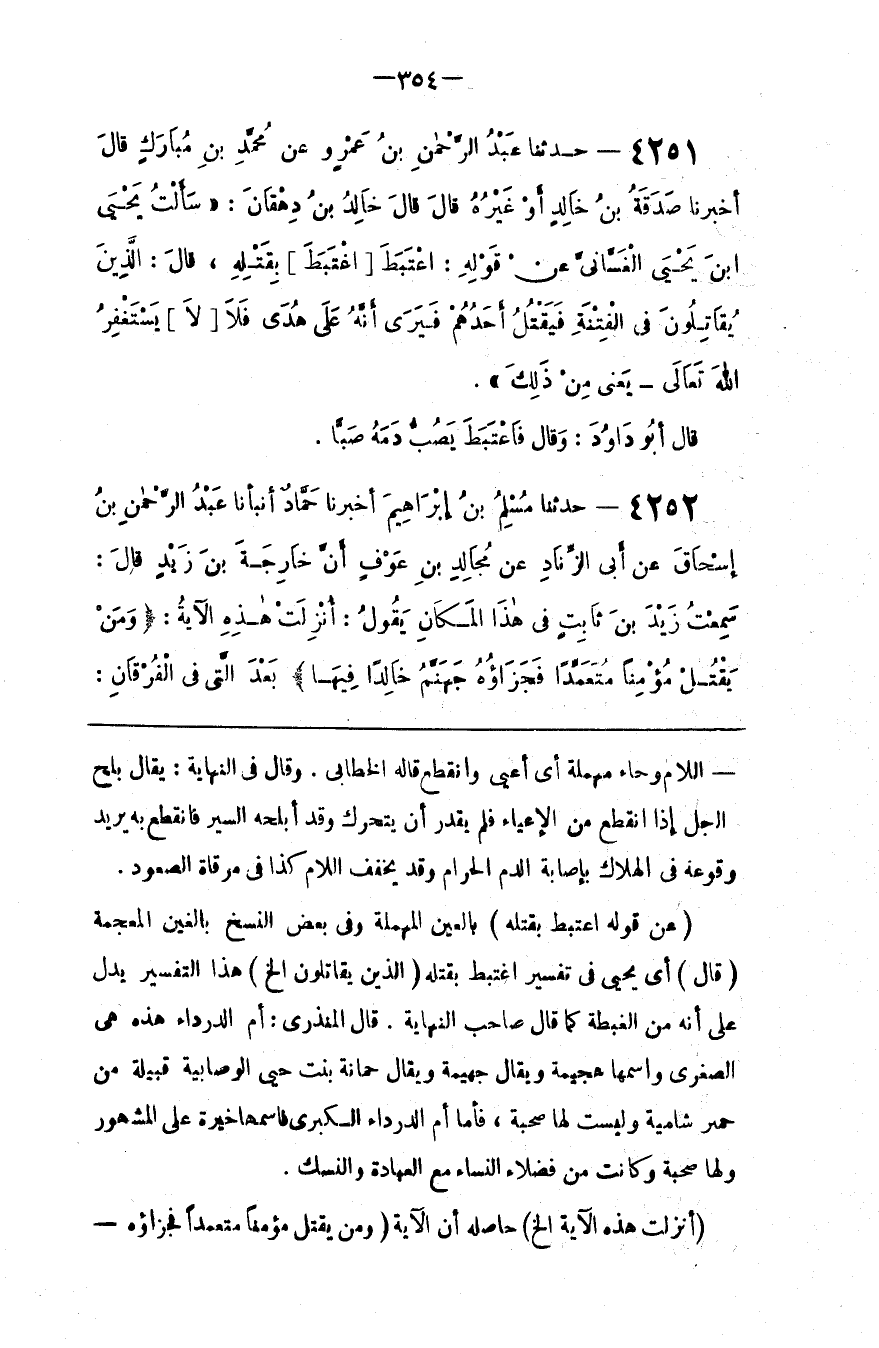 —٣٥٤—
٤٢٥١ — حدثنا عَبْدُ الرَّحْمٰنِ بنُ عَمْرٍو عن مُحمَّدِ بنِ مُبَارَكٍ قالَ
أخبرنا صَدَقَةُ بنُ خَالِدٍ أَوْ غَيْرُهُ قالَ قالَ خَالِدُ بنُ دِهْقَانَ : « سَأَلْتُ يَحْيَى
ابنَ يَحْيَى الْغَسَّانِىَّ عن قَوْلِهِ : اعْتَبَطَ [ اغْتَبَطَ ] بِقَتْلِهِ ، قالَ : الَّذِينَ
يُقَاتِلُونَ فى الْفِتْنَةِ فَيَقْتُلُ أَحَدُهُمْ فَيَرَى أَنَّهُ عَلَى هُدًى فَلَا [ لَا ] يَسْتَغْفِرُ
اللهَ تَعَالَى — يَعْنى مِنْ ذَلِكَ » .
قال أَبُو دَاوُدَ : وَقال فَاعْتَبَطَ يَصُبُّ دَمَهُ صَبًّا .
٤٢٥٢ — حدثنا مُسْلِمُ بنُ إِبْرَاهِيمَ أخبرنا حَمَّادٌ أنبأنا عَبْدُ الرَّحْمٰنِ بنُ
إِسْحَاقَ عن أَبى الزِّنَادِ عن مُجَالِدِ بنِ عَوْفٍ أَنَّ خَارِجَةَ بنَ زَيْدٍ قالَ :
سَمِعْتُ زَيْدَ بنَ ثَابِتٍ فى هٰذَا المَكَانِ يَقُولُ : أُنْزِلَتْ هٰذِهِ الآيَةُ : ﴿ وَمَنْ
يَقْتُلْ مُؤْمِناً مُتَعَمِّدًا فَجَزَاؤُهُ جَهَنَّمُ خَالِدًا فِيهَا ﴾ بَعْدَ الَّتِى فى الْفُرْقَانِ :
— اللام وحاء مهملة أى أعيى وانقطع قاله الخطابى . وقال فى النهاية : يقال بلح
الجمل إذا انقطع من الإعياء فلم يقدر أن يتحرك وقد أبلحه السير فانقطع به يريد
وقوعه فى الهلاك بإصابة الدم الحرام وقد يخفف اللام كذا فى مرقاة الصعود .
( عن قوله اعتبط بقتله ) بالعين المهملة وفى بعض النسخ بالغين المعجمة
( قال ) أى يحيى فى تفسير اغتبط بقتله ( الذين يقاتلون الخ ) هذا التفسير يدل
على أنه من الغبطة كما قال صاحب النهاية . قال المنذرى : أم الدرداء هذه هى
الصغرى واسمها هجيمة ويقال جهيمة ويقال جمانة بنت حيى الوصابية قبيلة من
حمير شامية وليست لها صحبة ، فأما أم الدرداء الكبرى فاسمها خيرة على المشهور
ولها صحبة وكانت من فضلاء النساء مع العبادة والنسك .
( أنزلت هذه الآية الخ ) حاصله أن الآية ( ومن يقتل مؤمناً متعمداً فجزاؤه —